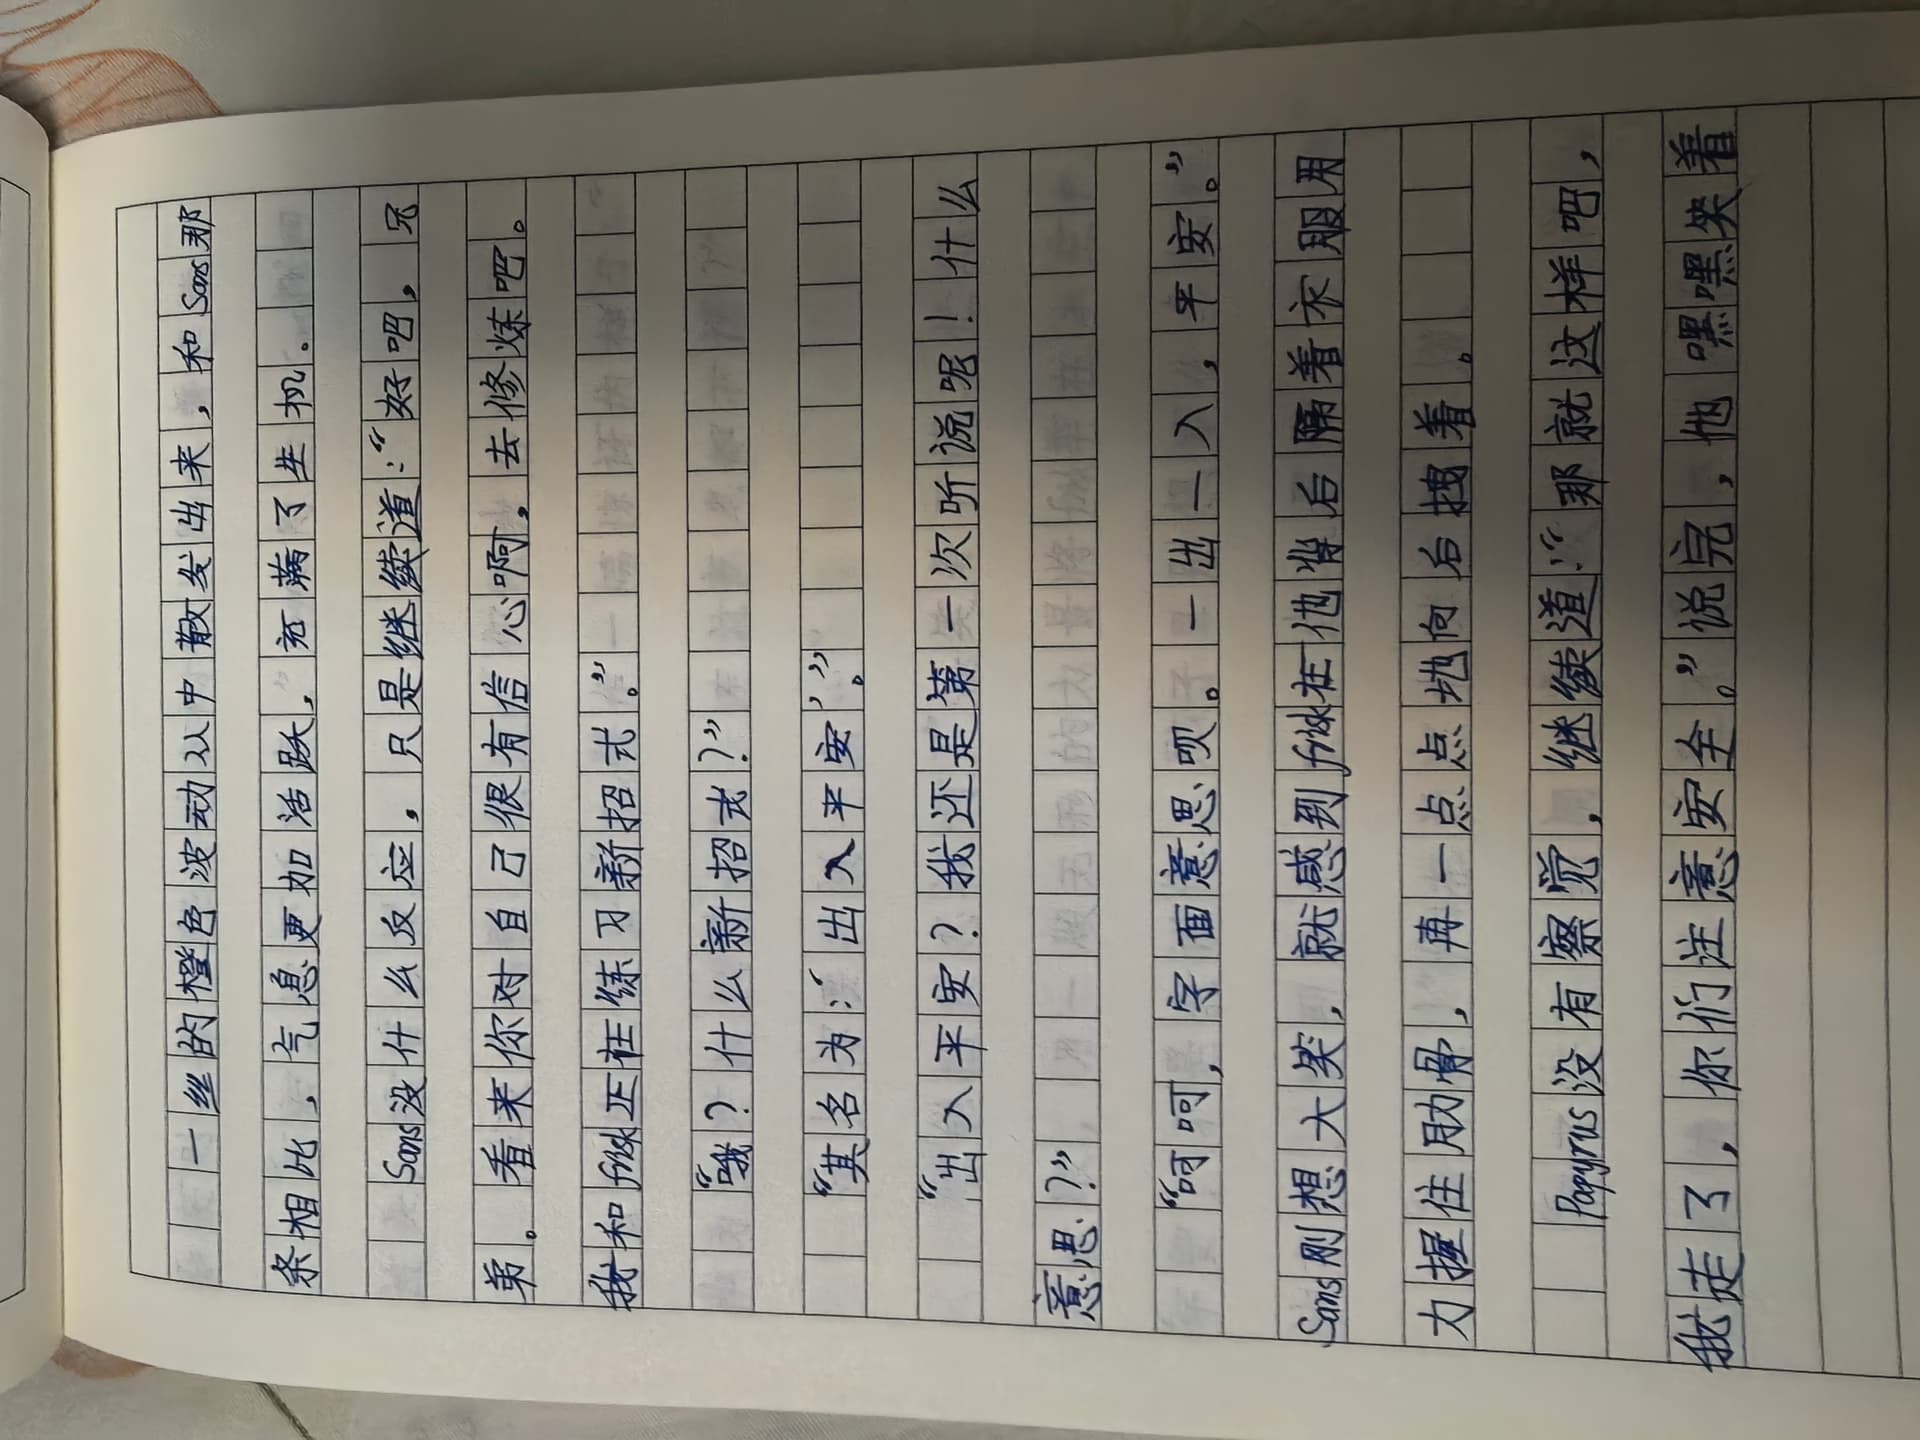 一丝的橙色波动从中散发出来，和Sans那
条相比，气息更加活跃，充满了生机。
Sans没什么反应，只是继续道：“好吧，兄
弟。看来你对自己很有信心啊，去修炼吧。
我和frisk正在练习新招式。”
“哦？什么新招式？”
“其名为：‘出入平安’。”
“出入平安？我还是第一次听说呢！什么
意思？”
“呵呵，字面意思呗。一出一入，平安。”
Sans刚想大笑，就感到frisk在他背后隔着衣服用
力握住肋骨，再一点点地向后拽着。
Papyrus没有察觉，继续道：“那就这样吧，
我走了，你们注意安全。”说完，他嘿嘿笑着